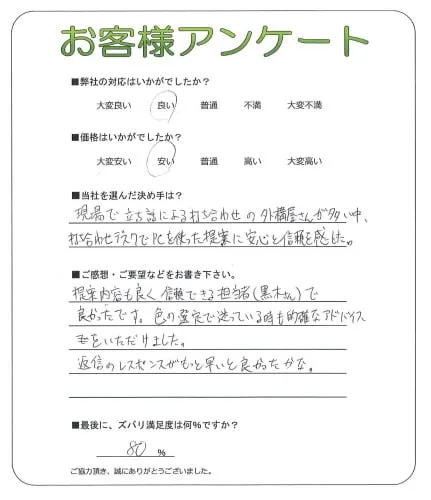 お客様アンケート
■弊社の対応はいかがでしたか？
大変良い 良い 普通 不満 大変不満
■価格はいかがでしたか？
大変安い 安い 普通 高い 大変高い
■当社を選んだ決め手は？
現場で立ち話による打ち合わせの外構屋さんが多い中、
打合わせデスクでPCを使った提案に安心と信頼を感じた。
■ご感想・ご要望などをお書き下さい。
提案内容も良く信頼できる担当者(黒木さん)で
良かったです。色の選定で迷っている時も的確なアドバイス
をいただけました。
返信のレスポンスがもっと早いと良かったかな。
■最後に、ズバリ満足度は何％ですか？
80 %
ご協力頂き、誠にありがとうございました。